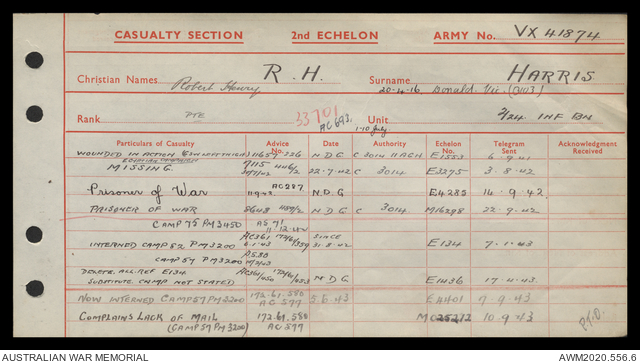 CASUALTY SECTION 2nd ECHELON ARMY No. VX 41874
Christian Names Robert Henry R. H. Surname HARRIS
20-4-16. Donald. Vic.
Rank PTE 33701 AC693. 1-10 July Unit 2/24 INF BN
Particulars of Casualty Advice No. Date Authority Echelon No. Telegram Sent Acknowledgment Received
WOUNDED IN ACTION 11657 226 N.D.G C 3014 11 AGH E1553 6.9.41
MISSING 7115 446/2 22-7-42 C 3014 E3275 3.8.42
Prisoner of War AC287 N.D.G E4285 14.9.42.
PRISONER OF WAR 8648 N.D.G C 3014 M16298 22.9.42
CAMP 75 PM 3450 AS 71
INTERNED CAMP 52 PM 3200 AC361 6.1.43 SINCE 31.8.42 E134 7.1.43
CAMP 57 PM 3200
DELETE ALL REF E134 AC361
SUBSTITUTE CAMP NOT STATED N.D.G E1436 17.4.43.
NOW INTERNED CAMP 57 PM 3200 172.61.580 AC 577 5.6.43 EA401 7.9.43
COMPLAINS LACK OF MAIL 172.61.580 10.9.43
(CAMP 57 PM 3200) AC 577 P.T.O.
AUSTRALIAN WAR MEMORIAL AWM2020.556.6